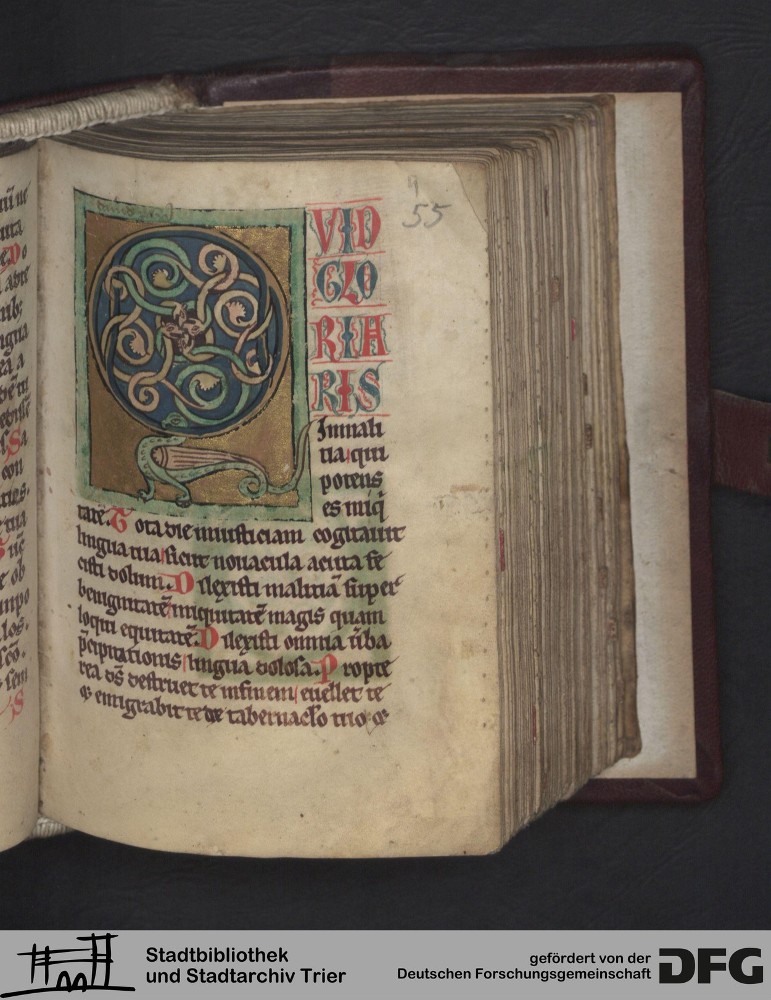 9
55
VID
GLO
RIA
RIS
Inmali
tia qui
potens
es iniq̇
tatē. Tota die iniusticiam cogitauit
lingua tua sicut nouacula acuta fe
cisti dolum. Dilexisti malitiā super
benignitatē iniquitatē magis quam
loqui equitatē. Dilexisti omnia ūba
p̄cipitationis lingua dolosa. Propte
rea dš destruet te infinem euellet te
⁊ emigrabit te de tabernaclo tuo ⁊
Stadtbibliothek
und Stadtarchiv Trier
gefördert von der
Deutschen Forschungsgemeinschaft
DFG